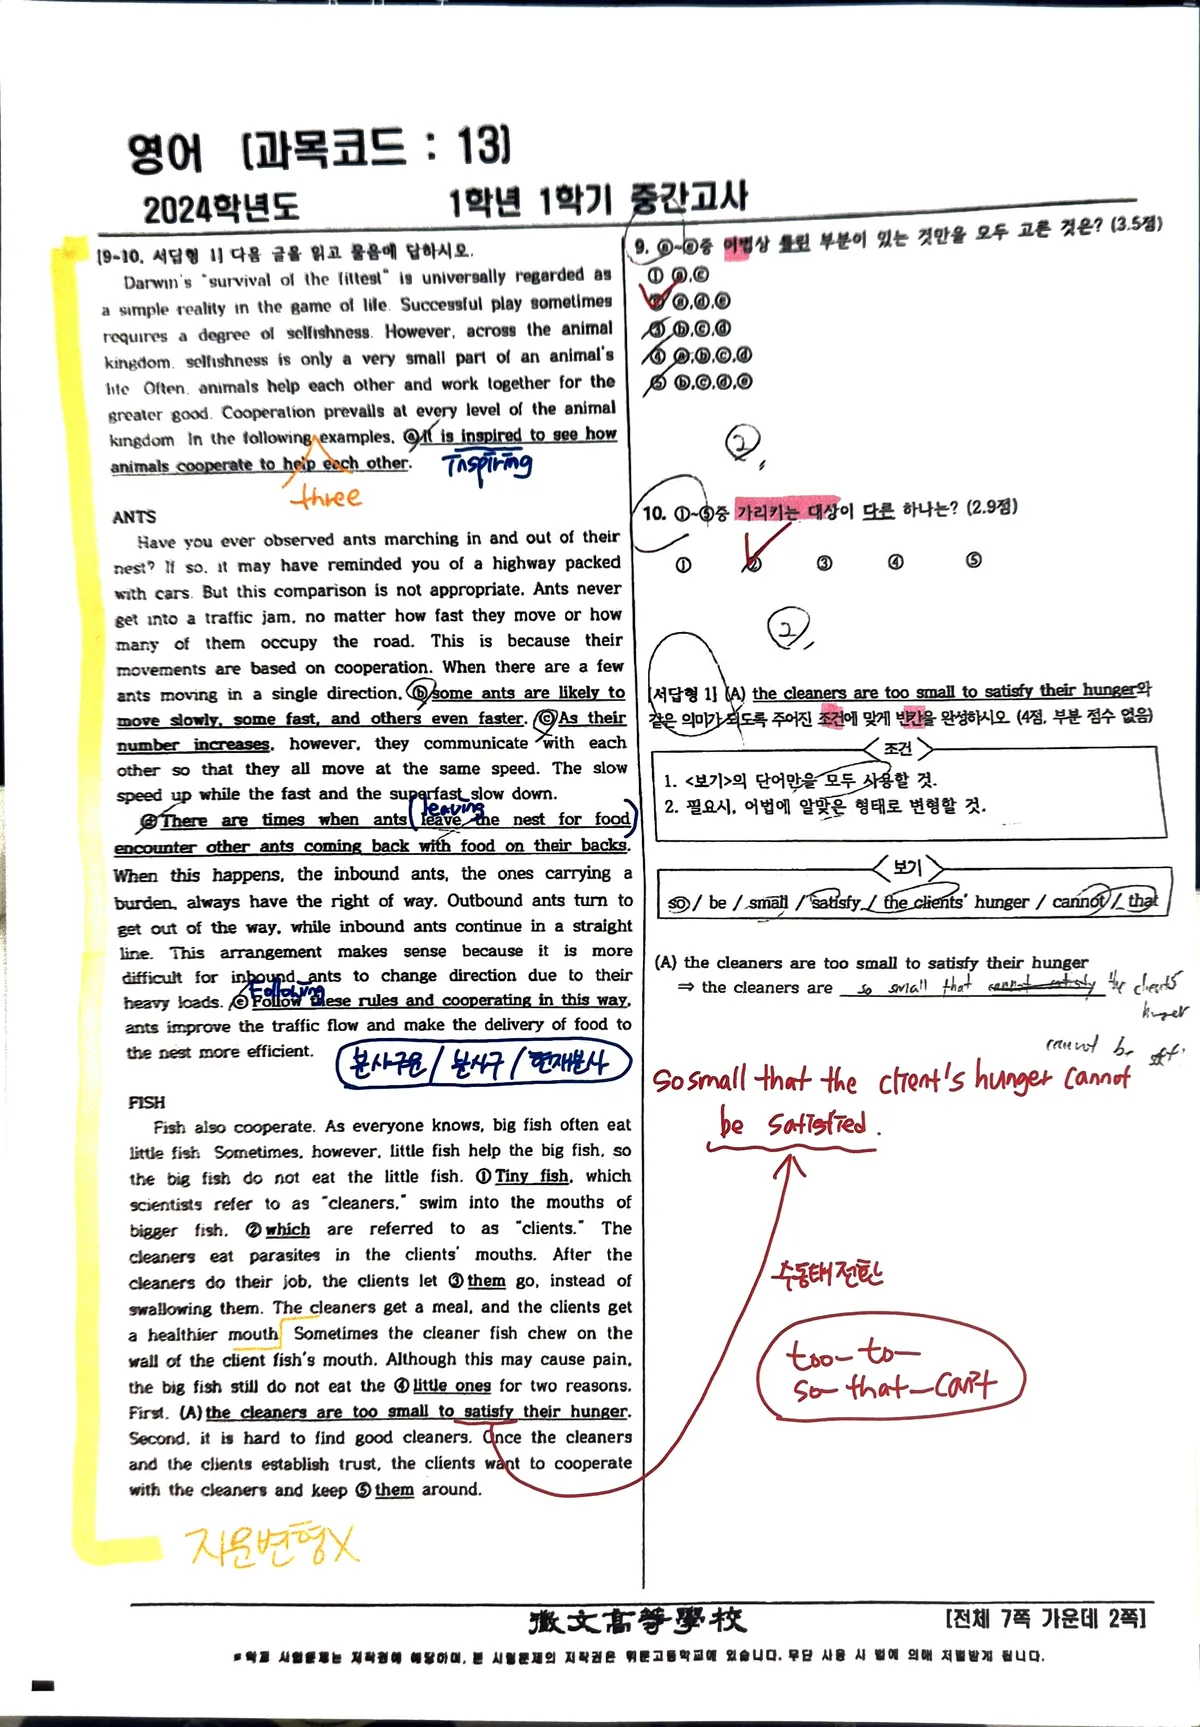 영어 [과목코드 : 13]
2024학년도 1학년 1학기 중간고사
[9-10, 서답형 1] 다음 글을 읽고 물음에 답하시오.
Darwin's "survival of the fittest" is universally regarded as
a simple reality in the game of life. Successful play sometimes
requires a degree of selfishness. However, across the animal
kingdom, selfishness is only a very small part of an animal's
life. Often, animals help each other and work together for the
greater good. Cooperation prevails at every level of the animal
kingdom. In the following examples, ⓐit is inspired to see how
animals cooperate to help each other.
inspiring
three
ANTS
Have you ever observed ants marching in and out of their
nest? If so, it may have reminded you of a highway packed
with cars. But this comparison is not appropriate. Ants never
get into a traffic jam, no matter how fast they move or how
many of them occupy the road. This is because their
movements are based on cooperation. When there are a few
ants moving in a single direction, ⓑsome ants are likely to
move slowly, some fast, and others even faster. ⓒAs their
number increases, however, they communicate with each
other so that they all move at the same speed. The slow
speed up while the fast and the superfast slow down.
leaving
ⓓThere are times when ants leave the nest for food
encounter other ants coming back with food on their backs.
When this happens, the inbound ants, the ones carrying a
burden, always have the right of way. Outbound ants turn to
get out of the way, while inbound ants continue in a straight
line. This arrangement makes sense because it is more
difficult for inbound ants to change direction due to their
Following
heavy loads. ⓔFollow these rules and cooperating in this way,
ants improve the traffic flow and make the delivery of food to
the nest more efficient.
분사구문 / 분사구 / 현재분사
FISH
Fish also cooperate. As everyone knows, big fish often eat
little fish. Sometimes, however, little fish help the big fish, so
the big fish do not eat the little fish. ①Tiny fish, which
scientists refer to as "cleaners," swim into the mouths of
bigger fish, ②which are referred to as "clients." The
cleaners eat parasites in the clients' mouths. After the
cleaners do their job, the clients let ③them go, instead of
swallowing them. The cleaners get a meal, and the clients get
a healthier mouth. Sometimes the cleaner fish chew on the
wall of the client fish's mouth. Although this may cause pain,
the big fish still do not eat the ④little ones for two reasons.
First, (A)the cleaners are too small to satisfy their hunger.
Second, it is hard to find good cleaners. Once the cleaners
and the clients establish trust, the clients want to cooperate
with the cleaners and keep ⑤them around.
지문변형X
9. ⓐ~ⓔ중 어법상 틀린 부분이 있는 것만을 모두 고른 것은? (3.5점)
① ⓐ,ⓒ
② ⓐ,ⓓ,ⓔ
③ ⓑ,ⓒ,ⓓ
④ ⓐ,ⓑ,ⓒ,ⓓ
⑤ ⓑ,ⓒ,ⓓ,ⓔ
②,
10. ①~⑤중 가리키는 대상이 다른 하나는? (2.9점)
① ② ③ ④ ⑤
②,
[서답형 1] (A) the cleaners are too small to satisfy their hunger와
같은 의미가 되도록 주어진 조건에 맞게 빈칸을 완성하시오. (4점, 부분 점수 없음)
< 조건 >
1. <보기>의 단어만을 모두 사용할 것.
2. 필요시, 어법에 알맞은 형태로 변형할 것.
< 보기 >
so / be / small / satisfy / the clients' hunger / cannot / that
(A) the cleaners are too small to satisfy their hunger
⇒ the cleaners are so small that cannot satisfy the clients
hunger
cannot be
So small that the client's hunger cannot
be satisfied.
수동태 전환
too – to –
so – that – can't
徽文高等學校
[전체 7쪽 가운데 2쪽]
※학교 시험문제는 저작권에 해당하며, 본 시험문제의 저작권은 휘문고등학교에 있습니다. 무단 사용 시 법에 의해 처벌받게 됩니다.